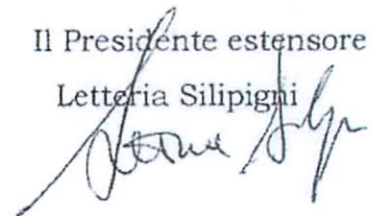 Il Presidente estensore
Letteria Silipigni